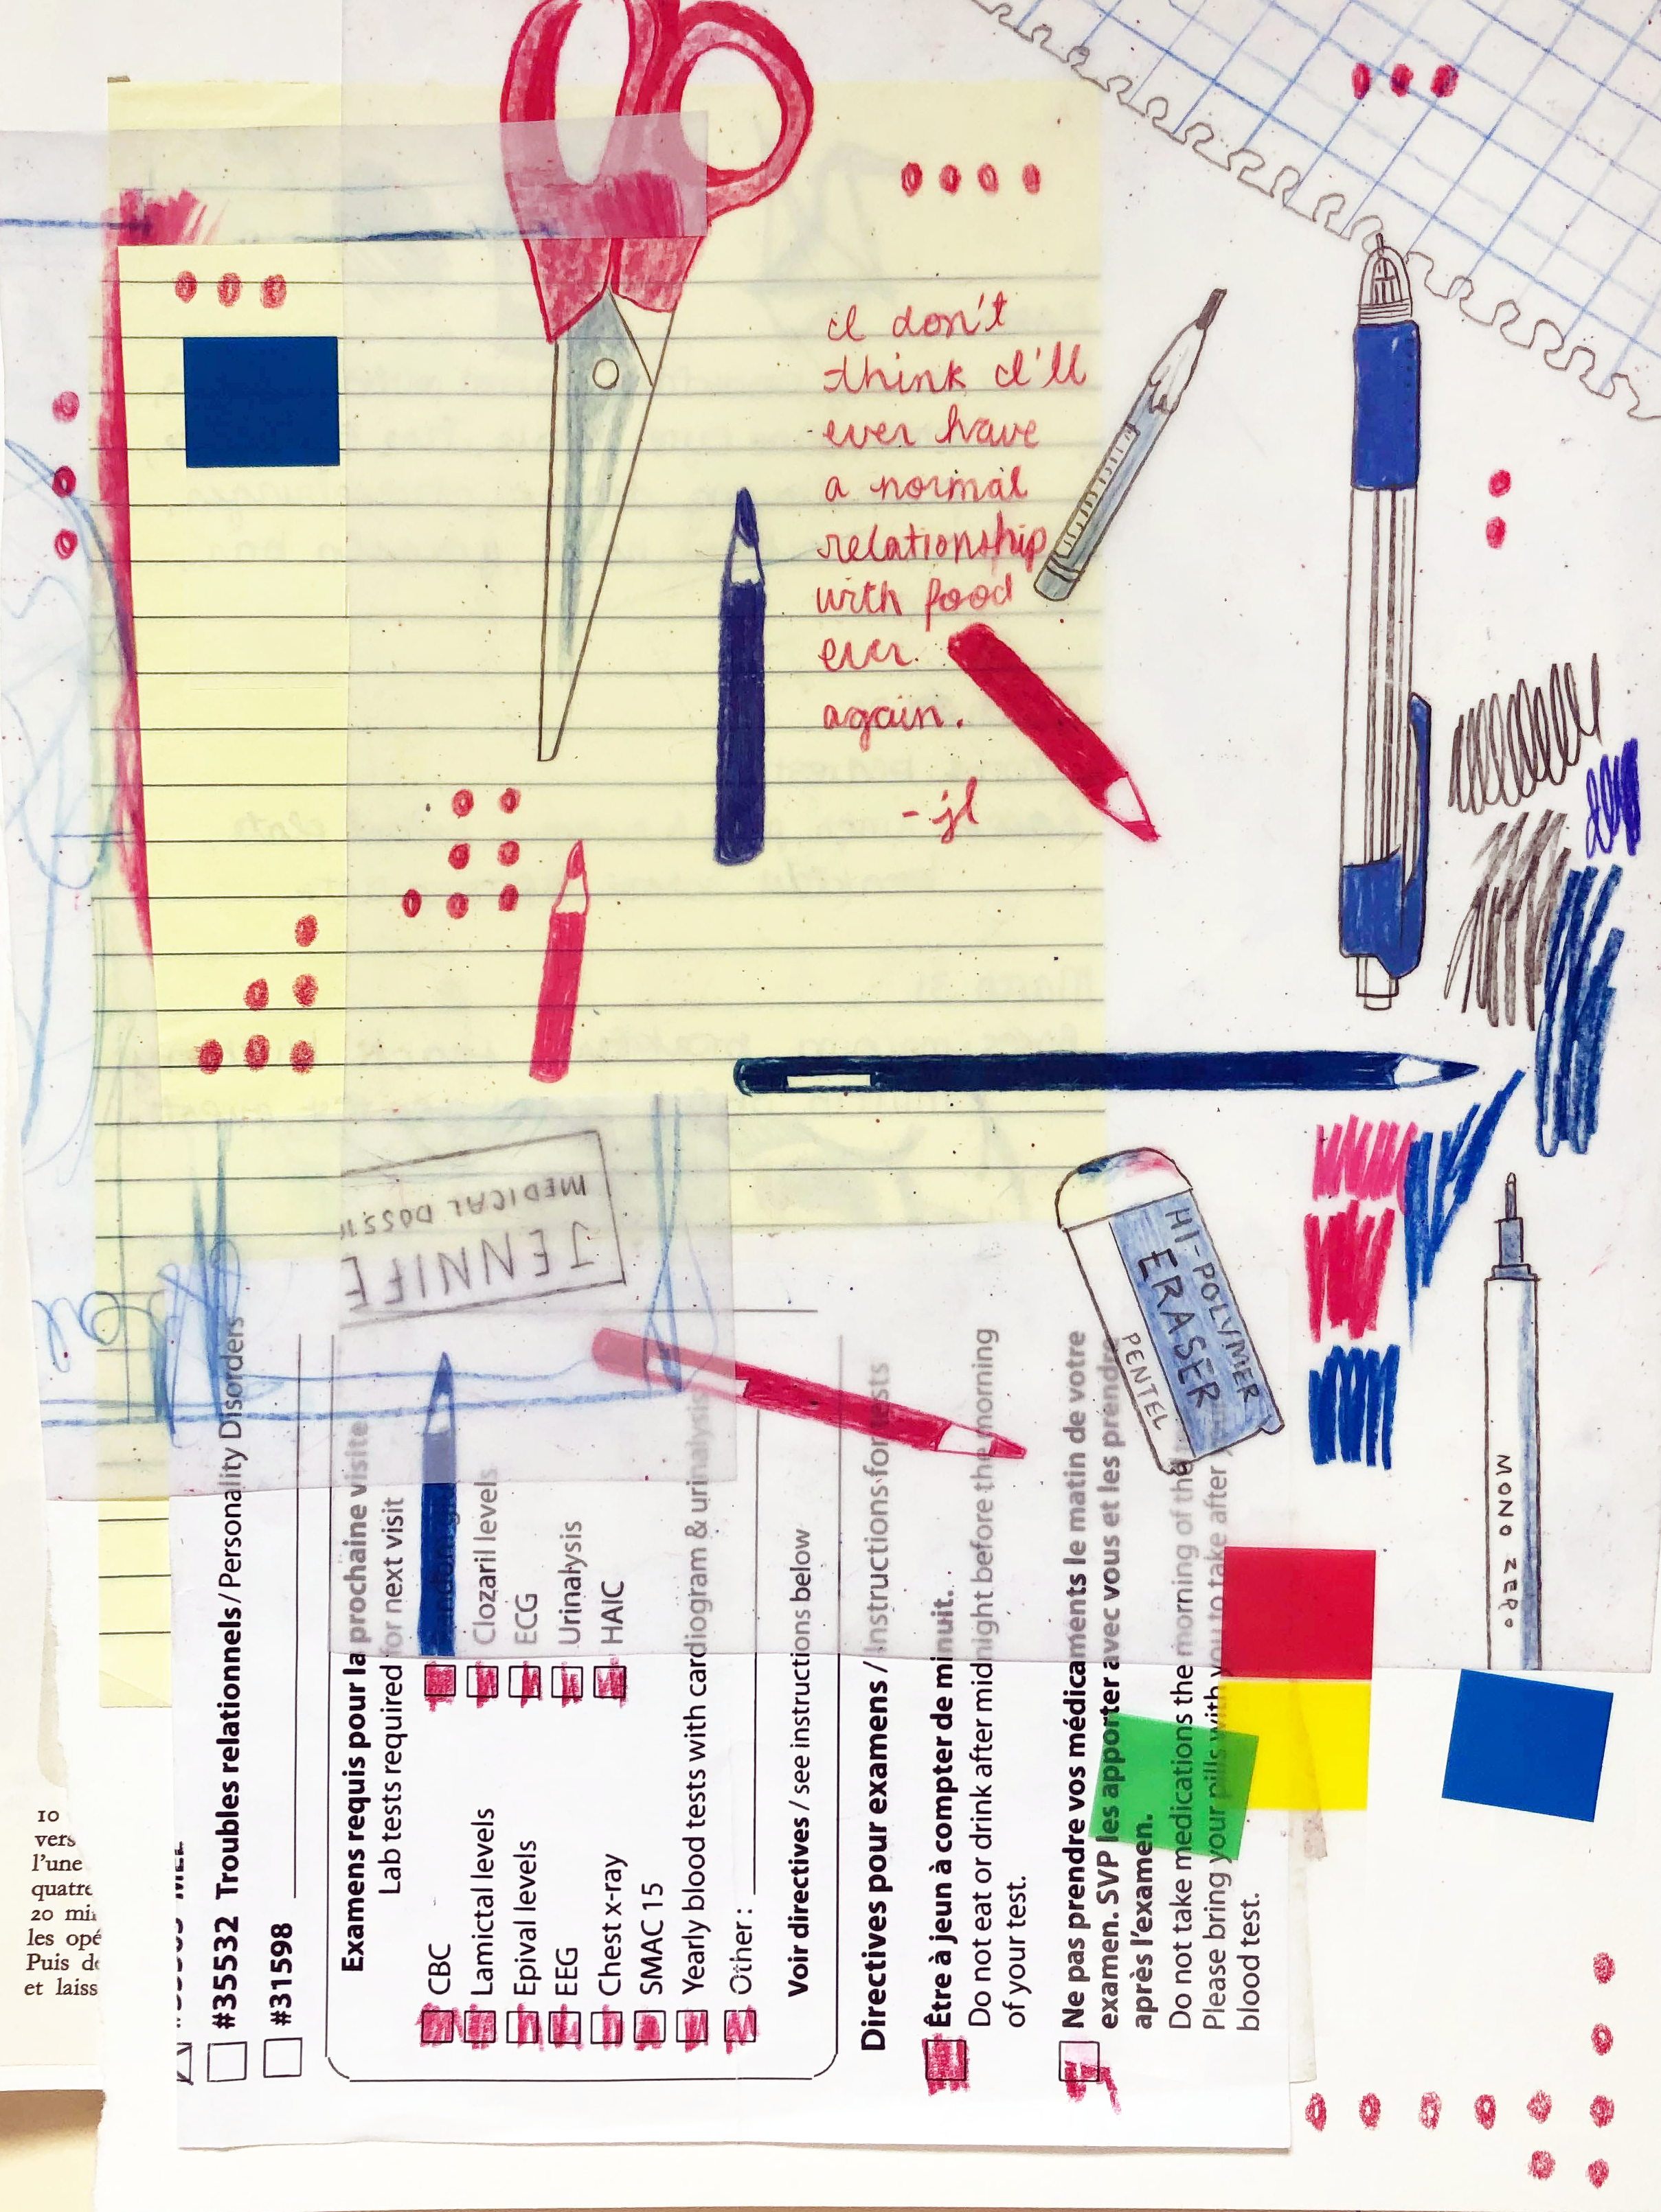 I don't
think I'll
ever have
a normal
relationship
with food
ever
again.
-jl
JENNIFE
MEDICAL DOSS
HI-POLYMER
ERASER
PENTEL
MONO ZERO
#35532 Troubles relationnels / Personality Disorders
#31598
Examens requis pour la prochaine visite
Lab tests required for next visit
CBC
Lamictal levels
Clozaril levels
Epival levels
ECG
EEG
Urinalysis
Chest x-ray
HAIC
SMAC 15
Yearly blood tests with cardiogram & urinalysis
Other :
Voir directives / see instructions below
Directives pour examens / Instructions for tests
Être à jeun à compter de minuit.
Do not eat or drink after midnight before the morning
of your test.
Ne pas prendre vos médicaments le matin de votre
examen. SVP les apporter avec vous et les prendre
après l'examen.
Do not take medications the morning of the
Please bring your pills with you to take after
blood test.
10
vers
l'une
quatre
20 mi
les opé
Puis de
et laiss